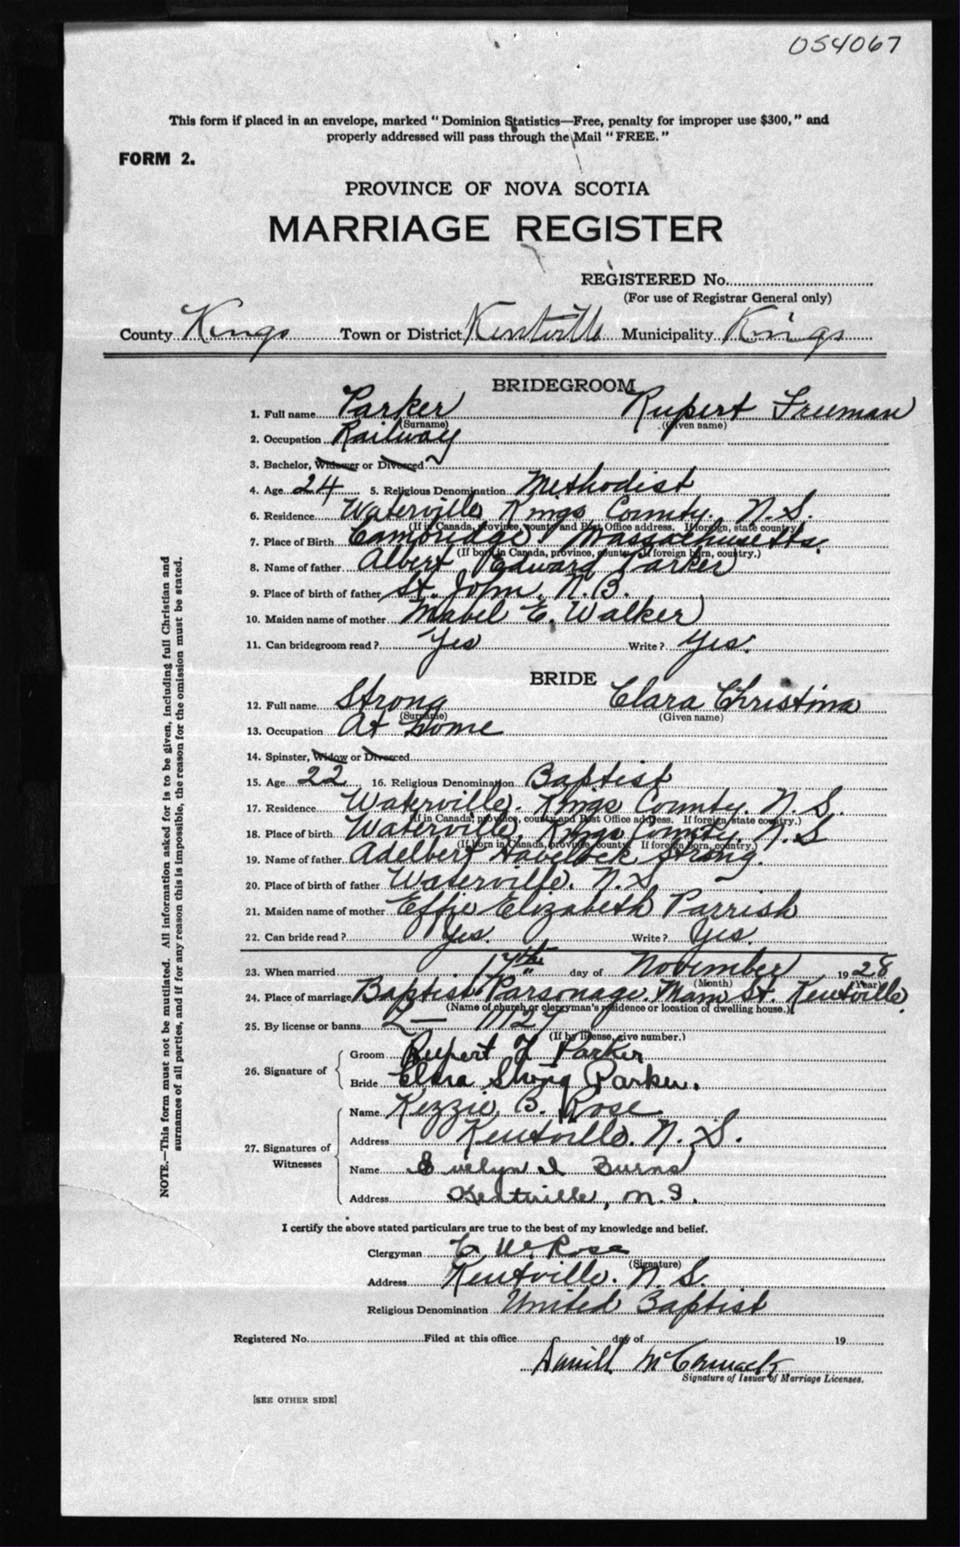 054067
This form if placed in an envelope, marked "Dominion Statistics—Free, penalty for improper use $300," and
properly addressed will pass through the Mail "FREE."
FORM 2.
PROVINCE OF NOVA SCOTIA
MARRIAGE REGISTER
REGISTERED No.
(For use of Registrar General only)
County Kings Town or District Kentville Municipality Kings
BRIDEGROOM
1. Full name Parker Rupert Freeman
(Surname) (Given name)
2. Occupation Railway
3. Bachelor, Widower or Divorced
4. Age 24 5. Religious Denomination Methodist
6. Residence Waterville, Kings County, N.S.
(If in Canada, province, county and Post Office address. If foreign, state country.)
7. Place of Birth Cambridge, Massachusetts.
(If born in Canada, province, county. If foreign born, country.)
8. Name of father Albert Edward Parker
9. Place of birth of father St. John, N.B.
10. Maiden name of mother Mabel E. Walker
11. Can bridegroom read? Yes Write? Yes.
BRIDE
12. Full name Strong Clara Christina
(Surname) (Given name)
13. Occupation At home
14. Spinster, Widow or Divorced
15. Age 22 16. Religious Denomination Baptist
17. Residence Waterville. Kings County. N.S.
(If in Canada, province, county and Post Office address. If foreign, state country.)
18. Place of birth Waterville, Kings County, N.S
(If born in Canada, province, county. If foreign born, country.)
19. Name of father Adelbert Havelock Strong.
20. Place of birth of father Waterville. N.S
21. Maiden name of mother Effie Elizabeth Parrish
22. Can bride read? Yes. Write? Yes.
23. When married 17th day of November 1928
(Month) (Year)
24. Place of marriage Baptist Parsonage. Main St. Kentville.
(Name of church or clergyman's residence or location of dwelling house.)
25. By license or banns 1127
(If by license, give number.)
26. Signature of Groom Rupert F Parker
Bride Clara Strong Parker.
27. Signatures of Witnesses Name Kezzie B. Rose
Address Kentville. N.S.
Name Evelyn I Burns
Address Kentville, N.S.
I certify the above stated particulars are true to the best of my knowledge and belief.
Clergyman Rose
(Signature)
Address Kentville. N.S.
Religious Denomination United Baptist
Registered No. Filed at this office day of 19
McCormack
Signature of Issuer of Marriage Licenses.
[SEE OTHER SIDE]
NOTE.—This form must not be mutilated. All information asked for is to be given, including full Christian and
surnames of all parties, and if for any reason this is impossible, the reason for the omission must be stated.